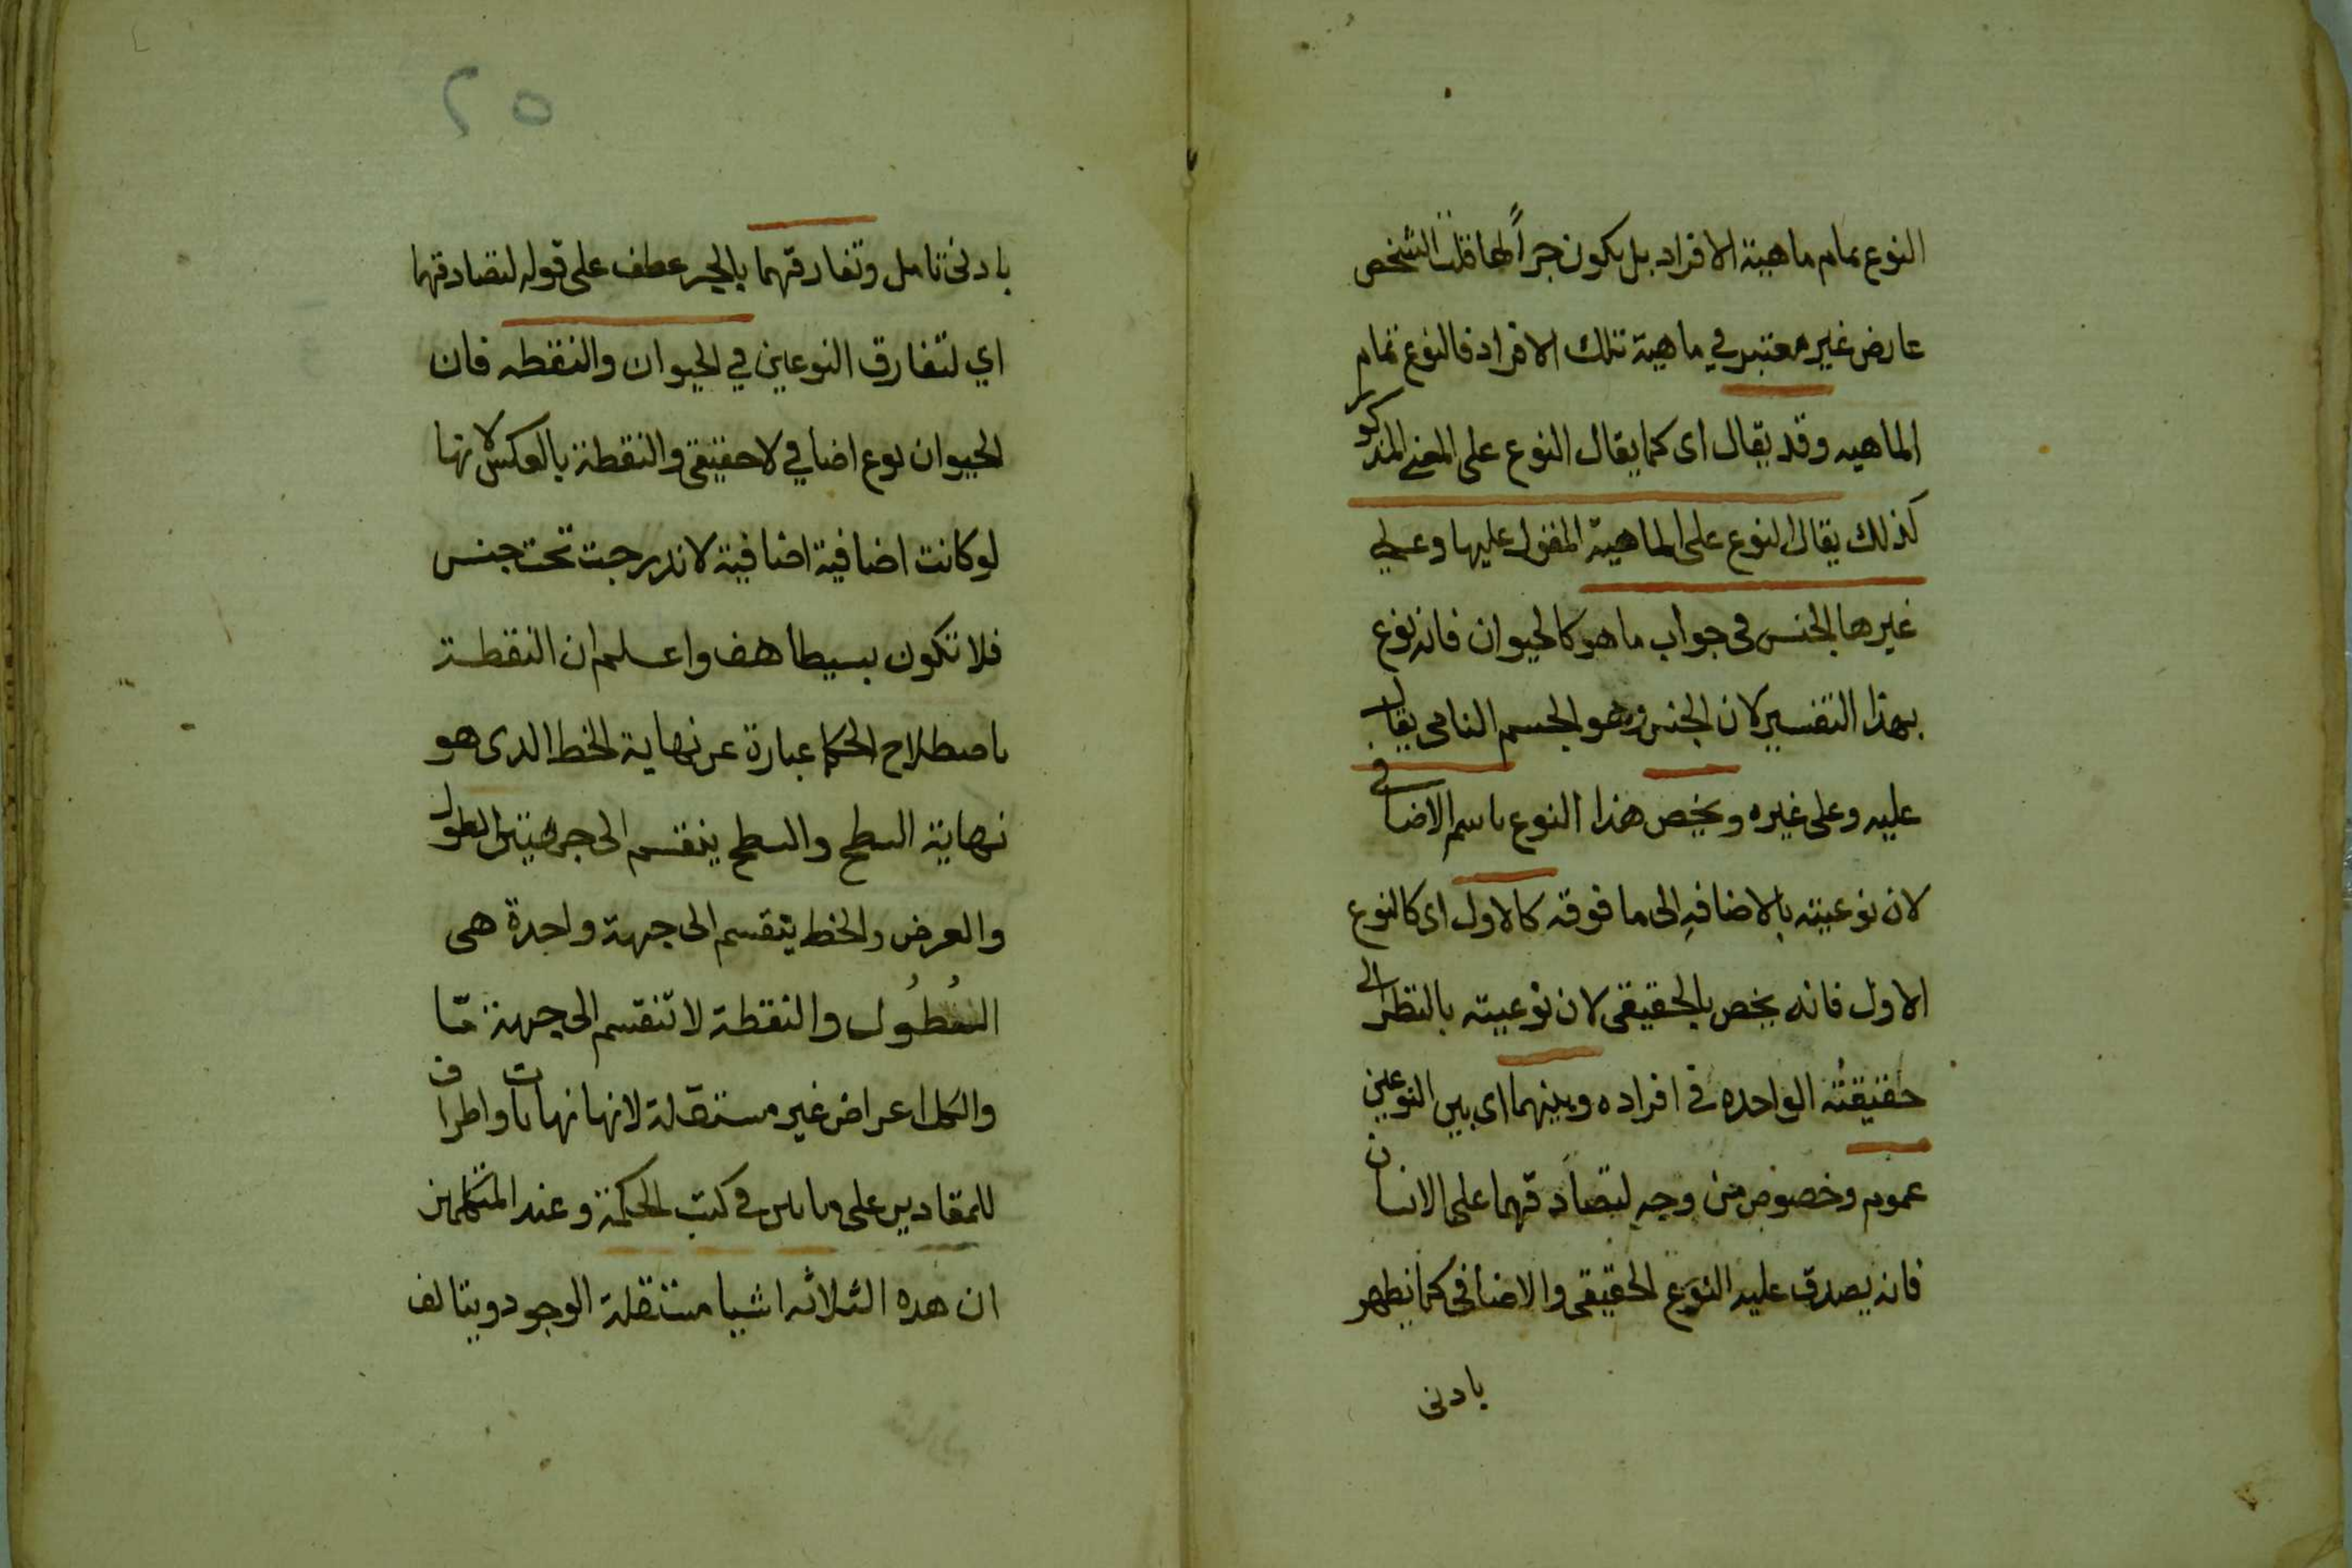 النوع تمام ماهية الافراد بل يكون جزأً لها قلت التشخص
عارض غير معتبر في ماهية تلك الافراد فالنوع تمام
الماهيه وقد يقال اى كما يقال النوع على المعنى المذكور
كذلك يقال النوع على الماهية المقول عليها وعلى
غيرها الجنس فى جواب ما هو كالحيوان فانه نوع
بهذا التفسير لان الجنس وهو الجسم النامى يقال
عليه وعلى غيره ويخص هذا النوع باسم الاضافي
لان نوعيته بالاضافه الى ما فوقه كالاول اى كالنوع
الاول فانه يخص بالحقيقى لان نوعيته بالنظر الى
حقيقته الواحده في افراده وبينهما اى بين النوعين
عموم وخصوص من وجه لتصادقهما على الانسان
فانه يصدق عليه النوع الحقيقى والاضافى كما يظهر
بادنى
٢٥
بادنى تامل وتفارقهما بالجر عطف على قوله لتصادقهما
اي لتفارق النوعين في الحيوان والنقطه فان
الحيوان نوع اضافي لا حقيقى والنقطة بالعكس لانها
لو كانت اضافية اضافية لاندرجت تحت جنس
فلا تكون بسيطا هف واعلم ان النقطة
باصطلاح الحكما عبارة عن نهاية الخط الذى هو
نهاية السطح والسطح ينقسم الى جهتين الطول
والعرض والخط ينقسم الى جهة واحدة هى
الطُول والنقطة لا تنقسم الى جهة مّا
والكل اعراض غير مستقلة لانها نهايات واطراف
للمقادير على ما بين في كتب الحكمة وعند المتكلمين
ان هذه الثلاثه اشيا مستقلة الوجود ويتالف